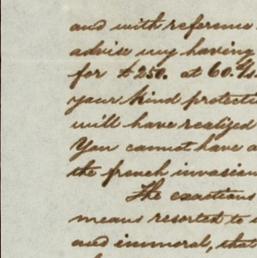 and with reference
advise my having
for £250. at 60.
your kind protecti
will have realized
You cannot have a
the french invasion
The exactions
means resorted to
and immoral, that